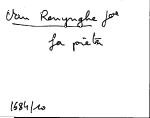 Van Renynghe Jos
La pièta
1684/20